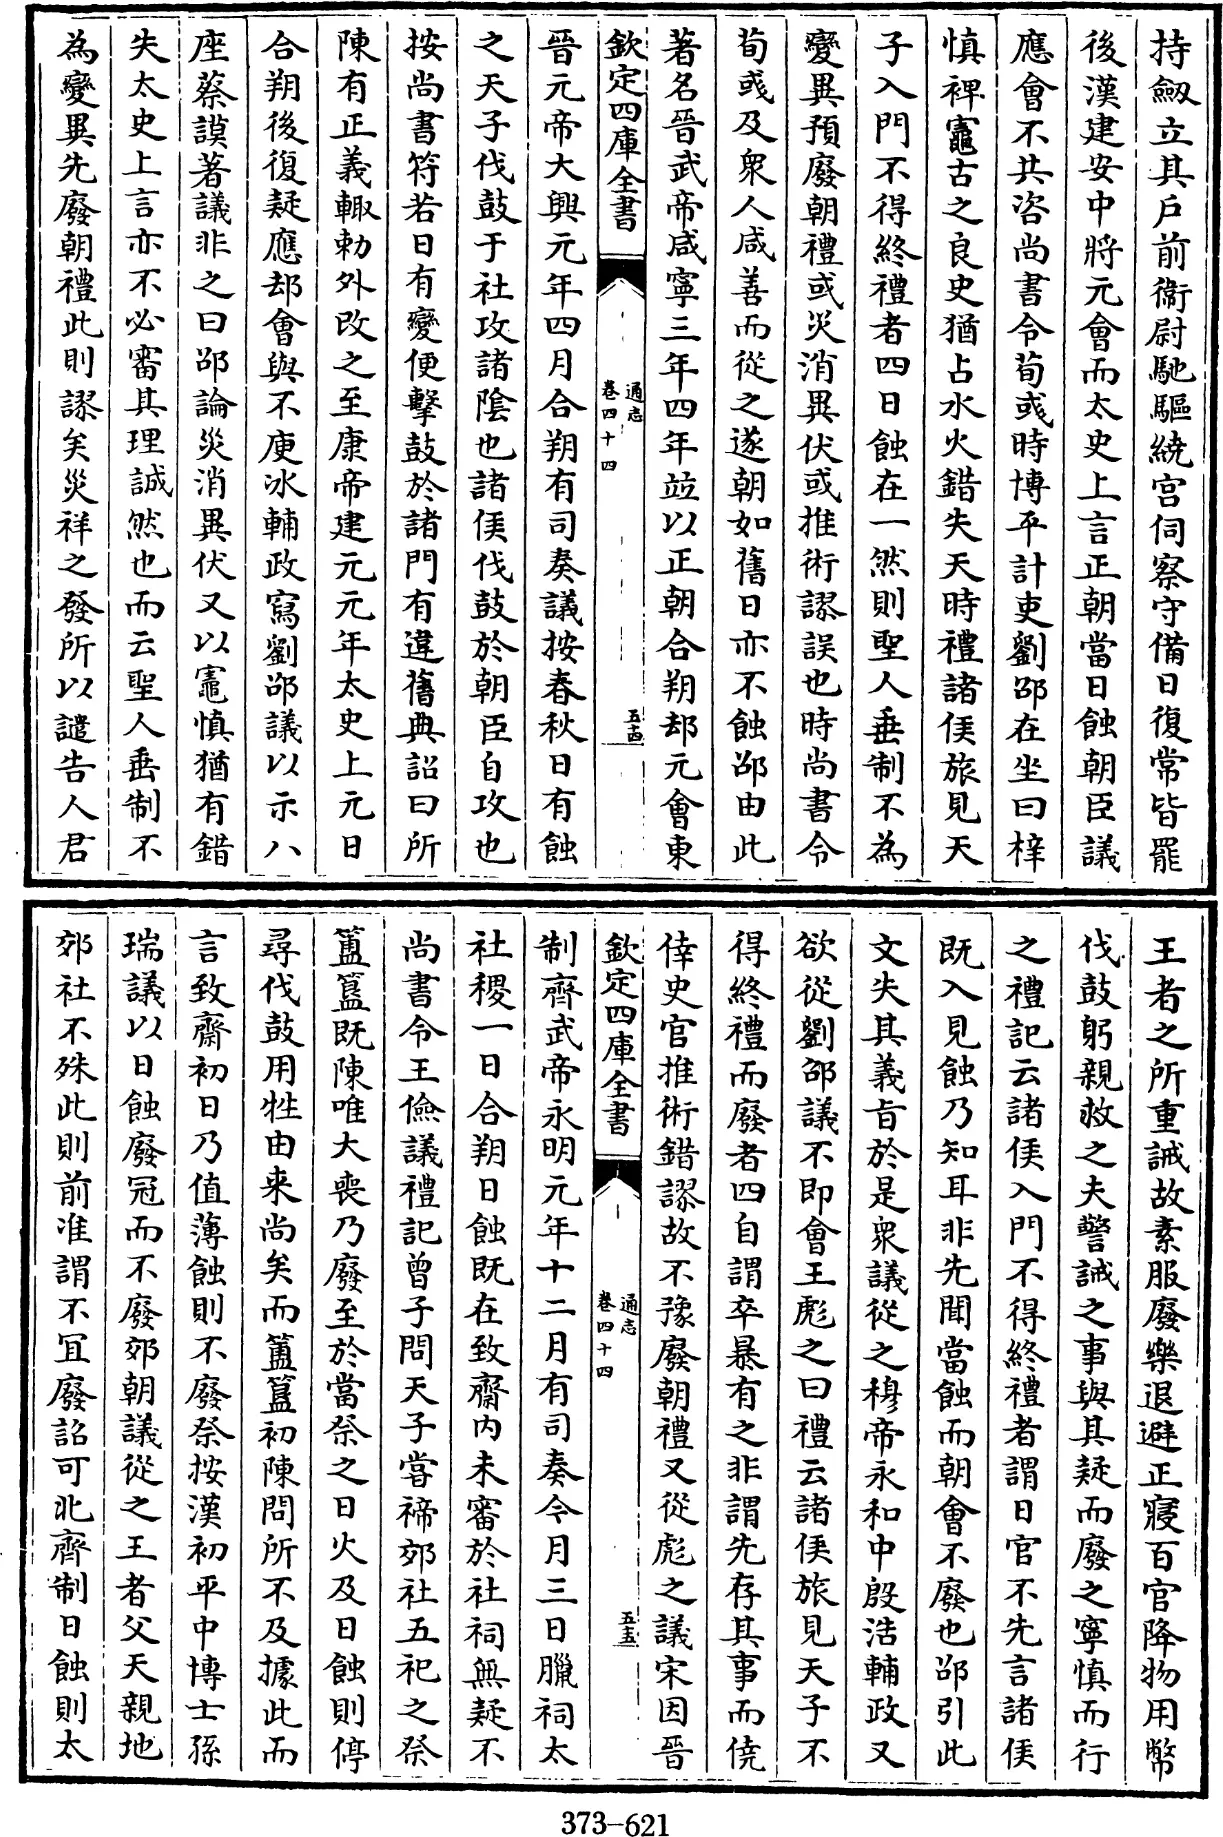 持劔立其戶前衞尉馳驅繞宫伺察守備日復常皆罷
後漢建安中將元會而太史上言正朝當日蝕朝臣議
應會不共咨尚書令荀彧時博平計吏劉邵在坐曰梓
慎裨竈古之良史猶占水火錯失天時禮諸侯旅見天
子入門不得終禮者四日蝕在一然則聖人垂制不為
變異預廢朝禮或災消異伏或推術謬誤也時尚書令
荀彧及衆人咸善而從之遂朝如舊日亦不蝕邵由此
著名晉武帝咸寧三年四年並以正朝合朔却元會東
欽定四庫全書
通志
卷四十四
五十四
晉元帝大興元年四月合朔有司奏議按春秋日有蝕
之天子伐鼓于社攻諸陰也諸侯伐鼓於朝臣自攻也
按尚書符若日有變便擊鼓於諸門有違舊典詔曰所
陳有正義輙勅外改之至康帝建元元年太史上元日
合朔後復疑應却會與不庾冰輔政寫劉邵議以示八
座蔡謨著議非之曰邵論災消異伏又以竈慎猶有錯
失太史上言亦不必審其理誠然也而云聖人垂制不
為變異先廢朝禮此則謬矣災祥之發所以譴告人君
王者之所重誡故素服廢樂退避正寢百官降物用幣
伐鼓躬親救之夫警誡之事與其疑而廢之寧慎而行
之禮記云諸侯入門不得終禮者謂日官不先言諸侯
既入見蝕乃知耳非先聞當蝕而朝會不廢也邵引此
文失其義旨於是衆議從之穆帝永和中殷浩輔政又
欲從劉邵議不即會王彪之曰禮云諸侯旅見天子不
得終禮而廢者四自謂卒暴有之非謂先存其事而僥
倖史官推術錯謬故不豫廢朝禮又從彪之議宋因晉
欽定四庫全書
通志
卷四十四
五十五
制齊武帝永明元年十二月有司奏今月三日臘祠太
社稷一日合朔日蝕既在致齋内未審於社祠無疑不
尚書令王儉議禮記曾子問天子嘗禘郊社五祀之祭
簠簋既陳唯大喪乃廢至於當祭之日火及日蝕則停
尋伐鼓用牲由来尚矣而簠簋初陳問所不及據此而
言致齋初日乃值薄蝕則不廢祭按漢初平中博士孫
瑞議以日蝕廢冠而不廢郊朝議從之王者父天親地
郊社不殊此則前准謂不宜廢詔可北齊制日蝕則太
373-621